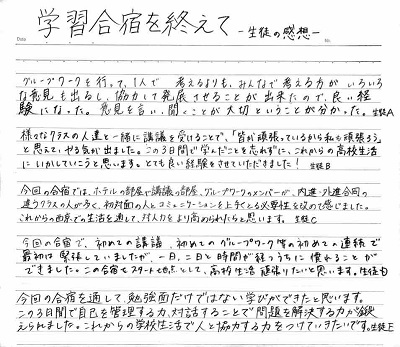 学習合宿を終えて
-生徒の感想-
Date
No.
グループワークを行って、1人で 考えるよりも、みんなで考える方が いろいろ
な意見も出るし、協力して発展させることが出来たので、良い経
験になった。意見を言い、聞くことが大切ということが分かった。生徒A
様々なクラスの人達と一緒に講義を受けることで、「皆が頑張っているから私も頑張ろう」
と思えて、やる気が出ました。この3日間で学んだことを忘れずに、これからの高校生活
にいかしていこうと思います。とても良い経験をさせていただきました! 生徒B
今回の合宿では、ホテルの部屋や講議の部屋、グループワークのメンバーが、内進・外進合同の
違うクラスの人が多く、初対面の人とコミュニケーションを上手くとる必要性を改めて感じました。
これからの西京での生活を通して、対人力をより高められたらと思います。 生徒C
今回の合宿で、初めての講議、初めてのグループワーク等の初めての連続で
最初は緊張していましたが、一日、二日と時間が経つうちに慣れることが
できました。この合宿をスタート地点として、高校生活頑張りたいと思います。生徒D
今回の合宿を通して、勉強面だけではない学びができたと思います。
この3日間で自己を管理する力、対話することで問題を解決する力が鍛
えられました。これからの学校生活で人と協力する力をつけていきたいです。生徒E